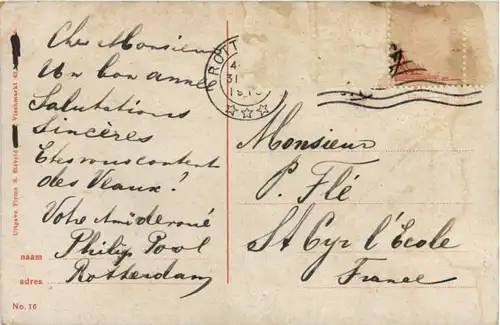 Cher Monsieur
Un bon anné
Salutations
Sincères
Etes vous content
des Veaux!
Votre Ami dévoué
Philip Pool
Rotterdam
naam
adres
No. 16
Uitgave Firma S.
Vischmarkt
ROTT
31
Monsieur
P. Flé
St Cyr l'Ecole
France